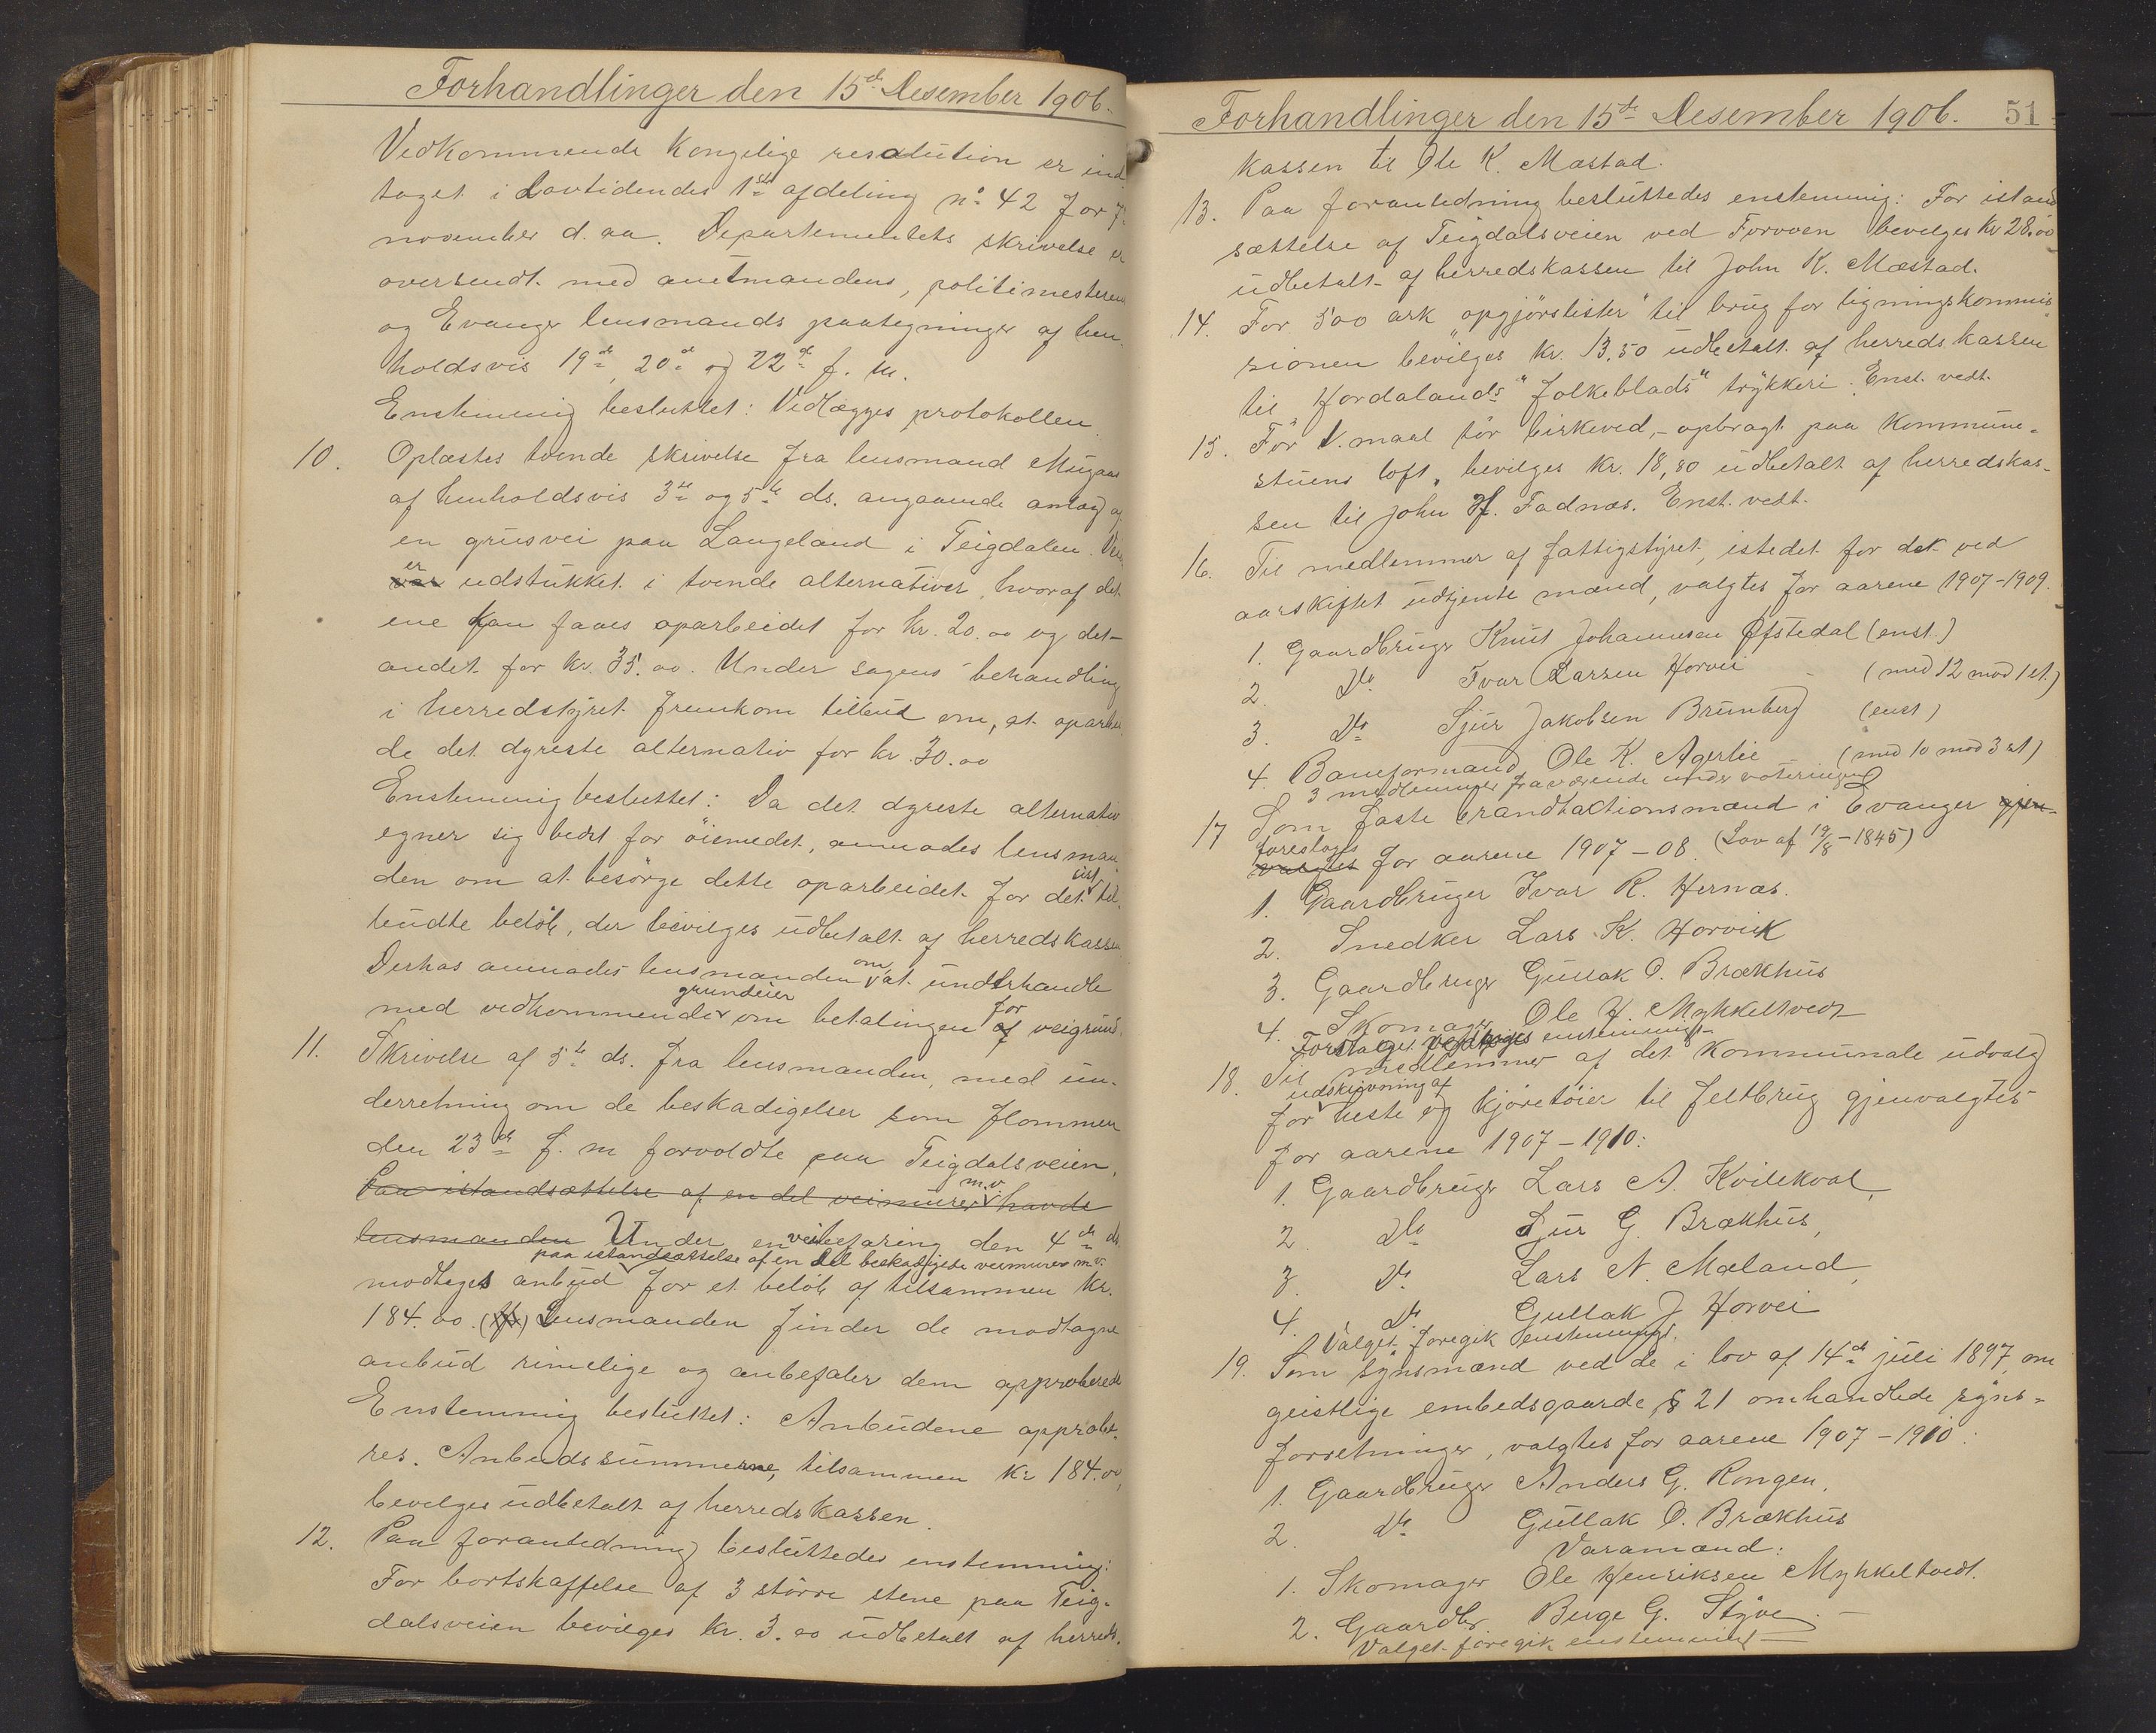 Forhandlinger den 15de Desember 1906.
Vedkommende kongelige resolution er ind-
taget i Lovtidendes 1ste afdeling no 42 for 7.
november d. aa. Departementets skrivelse er
oversendt med amtmandens, politimesterens
og Evanger lensmands paategninger af hen-
holdsvis 19de, 20de og 22de f. m.
Enstemmig besluttet: Vedlægges protokollen.
10. Oplæstes tvende skrivelse fra lensmand Mugaas
af henholdsvis 3de og 5te ds. angaaende anlæg af
en grusvei paa Langeland i Teigdalen. Veien
var er udstukket i tvende alternativer, hvoraf det
ene kan faaes oparbeidet for kr. 20.00 og det
andet for kr. 35.00. Under sagens behandling
i herredstyret fremkom tilbud om, at oparbei-
de det dyreste alternativ for kr. 30.00
Enstemmig besluttet: Da det dyreste alternativ
egner sig bedst for öiemedet, anmodes lensman-
den om at besörge dette oparbeidet for det sist til-
budte belöb, der bevilges udbetalt af herredskassen
Derhos anmodes lensmanden om, at underhandle
med vedkommende grundeier om betalingen af for veigrund.
11. Skrivelse af 5te ds. fra lensmanden, med un-
derretning om de beskadigelser som flommen
den 23de f. m forvoldte paa Teigdalsveien.
Paa istandsættelse af en del veimurer m.v. havde
lensmanden Under en veibefaring den 4de ds.
paa istandsættelse af en del beskadigede veimurer m.v.
modtoges anbud for et belöb af tilsammen kr.
184.00. Lensmanden finder de modtagne
anbud rimelige og anbefaler dem approberede
Enstemmig besluttet: Anbudene approbe-
res. Anbudssummerne, tilsammen kr 184.00,
bevilges udbetalt af herredskassen.
12. Paa foranledning besluttedes enstemmig:
For bortskaffelse af 3 större stene paa Teig-
dalsveien bevilges kr. 3.00 udbetalt af herreds-
Forhandlinger den 15de Desember 1906. 51
kassen til Ole K. Mæstad.
13. Paa foranledning besluttedes enstemmig: For istand
sættelse af Teigdalsveien ved Furvoen bevilges kr 28.00
udbetalt af herredskassen til John K. Mæstad.
14. For 500 ark "opgjörslister" til brug for ligningskommis
sionen bevilges kr. 13.50 udbetalt af herredskassen
til "Hordalands Folkeblads" trykkeri. Enst. vedt.
15. For 1. maal tör birkeved,- opbragt paa kommune-
stuens loft, bevilges kr. 18,80 udbetalt af herredskas-
sen til John H. Fadnæs. Enst. vedt.
16. Til medlemmer af fattigstyret, istedet for det ved
aarskiftet udtjente mænd, valgtes for aarene 1907-1909.
1. Gaardbruger Knut Johannesen Øfstedal (enst.)
2. Do Ivar Larsen Horvei (med 12 mod 1 st.)
3. Do Sjur Jakobsen Brunberg (enst)
4. Baneformand Ole K. Agerlie (med 10 mod 3 st)
3 medlemmer fraværende under voteringen
17 Som faste brandtaktionsmænd i Evanger gjen-
valgtes foresloges for aarene 1907-08. (Lov af 19/8-1845)
1. Gaardbruger Ivar R. Hernæs.
2. Snedker Lars K. Horvik
3. Gaardbruger Gullak O. Brækhus
4. Skomager Ole H. Mykkeltvedt
Forslaget vedtoges enstemmigt
18. Til medlemmer af det kommunale udvalg
for udskrivning af heste og kjöretöier til feltbrug gjenvalgtes
for aarene 1907-1910:
1. Gaardbruger Lars A. Kvilekval,
2. Do Sjur G. Brækhus,
3. Do Lars N. Mæland,
4. Do Gullak J Horvei
Valget foregik enstemmigt.
19. Som synsmænd ved de i lov af 14de juli 1897 om
geistlige embedsgaarde, § 21 omhandlede syns-
forretninger, valgtes for aarene 1907-1910:
1. Gaardbruger Anders G. Rongen,
2. Do Gullak O. Brækhus
Varamænd:
1. Skomager Ole Henriksen Mykkeltvedt.
2. Gaardbr. Berge G. Styve.
Valget foregik enstemmigt